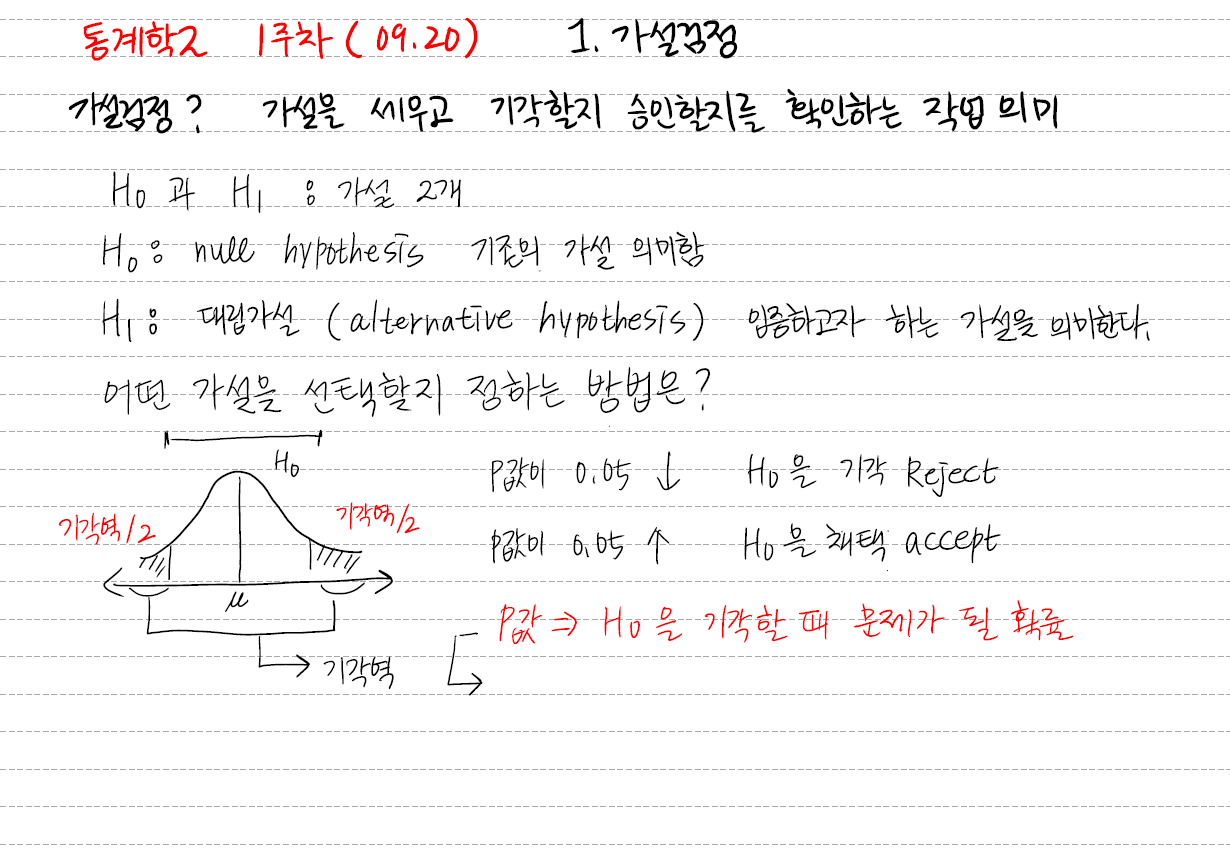 통계학2 1주차 ( 09.20) 1. 가설검정
가설검정? 가설을 세우고 기각할지 승인할지를 확인하는 작업 의미
H0 과 H1 : 가설 2개
H0 : null hypothesis 기존의 가설 의미함
H1 : 대립가설 (alternative hypothesis) 입증하고자 하는 가설을 의미한다.
어떤 가설을 선택할지 정하는 방법은?
H0
기각역/2
기각역/2
μ
기각역
P값이 0.05 ↓ H0을 기각 Reject
P값이 0.05 ↑ H0을 채택 accept
P값 ⇒ H0을 기각할 때 문제가 될 확률